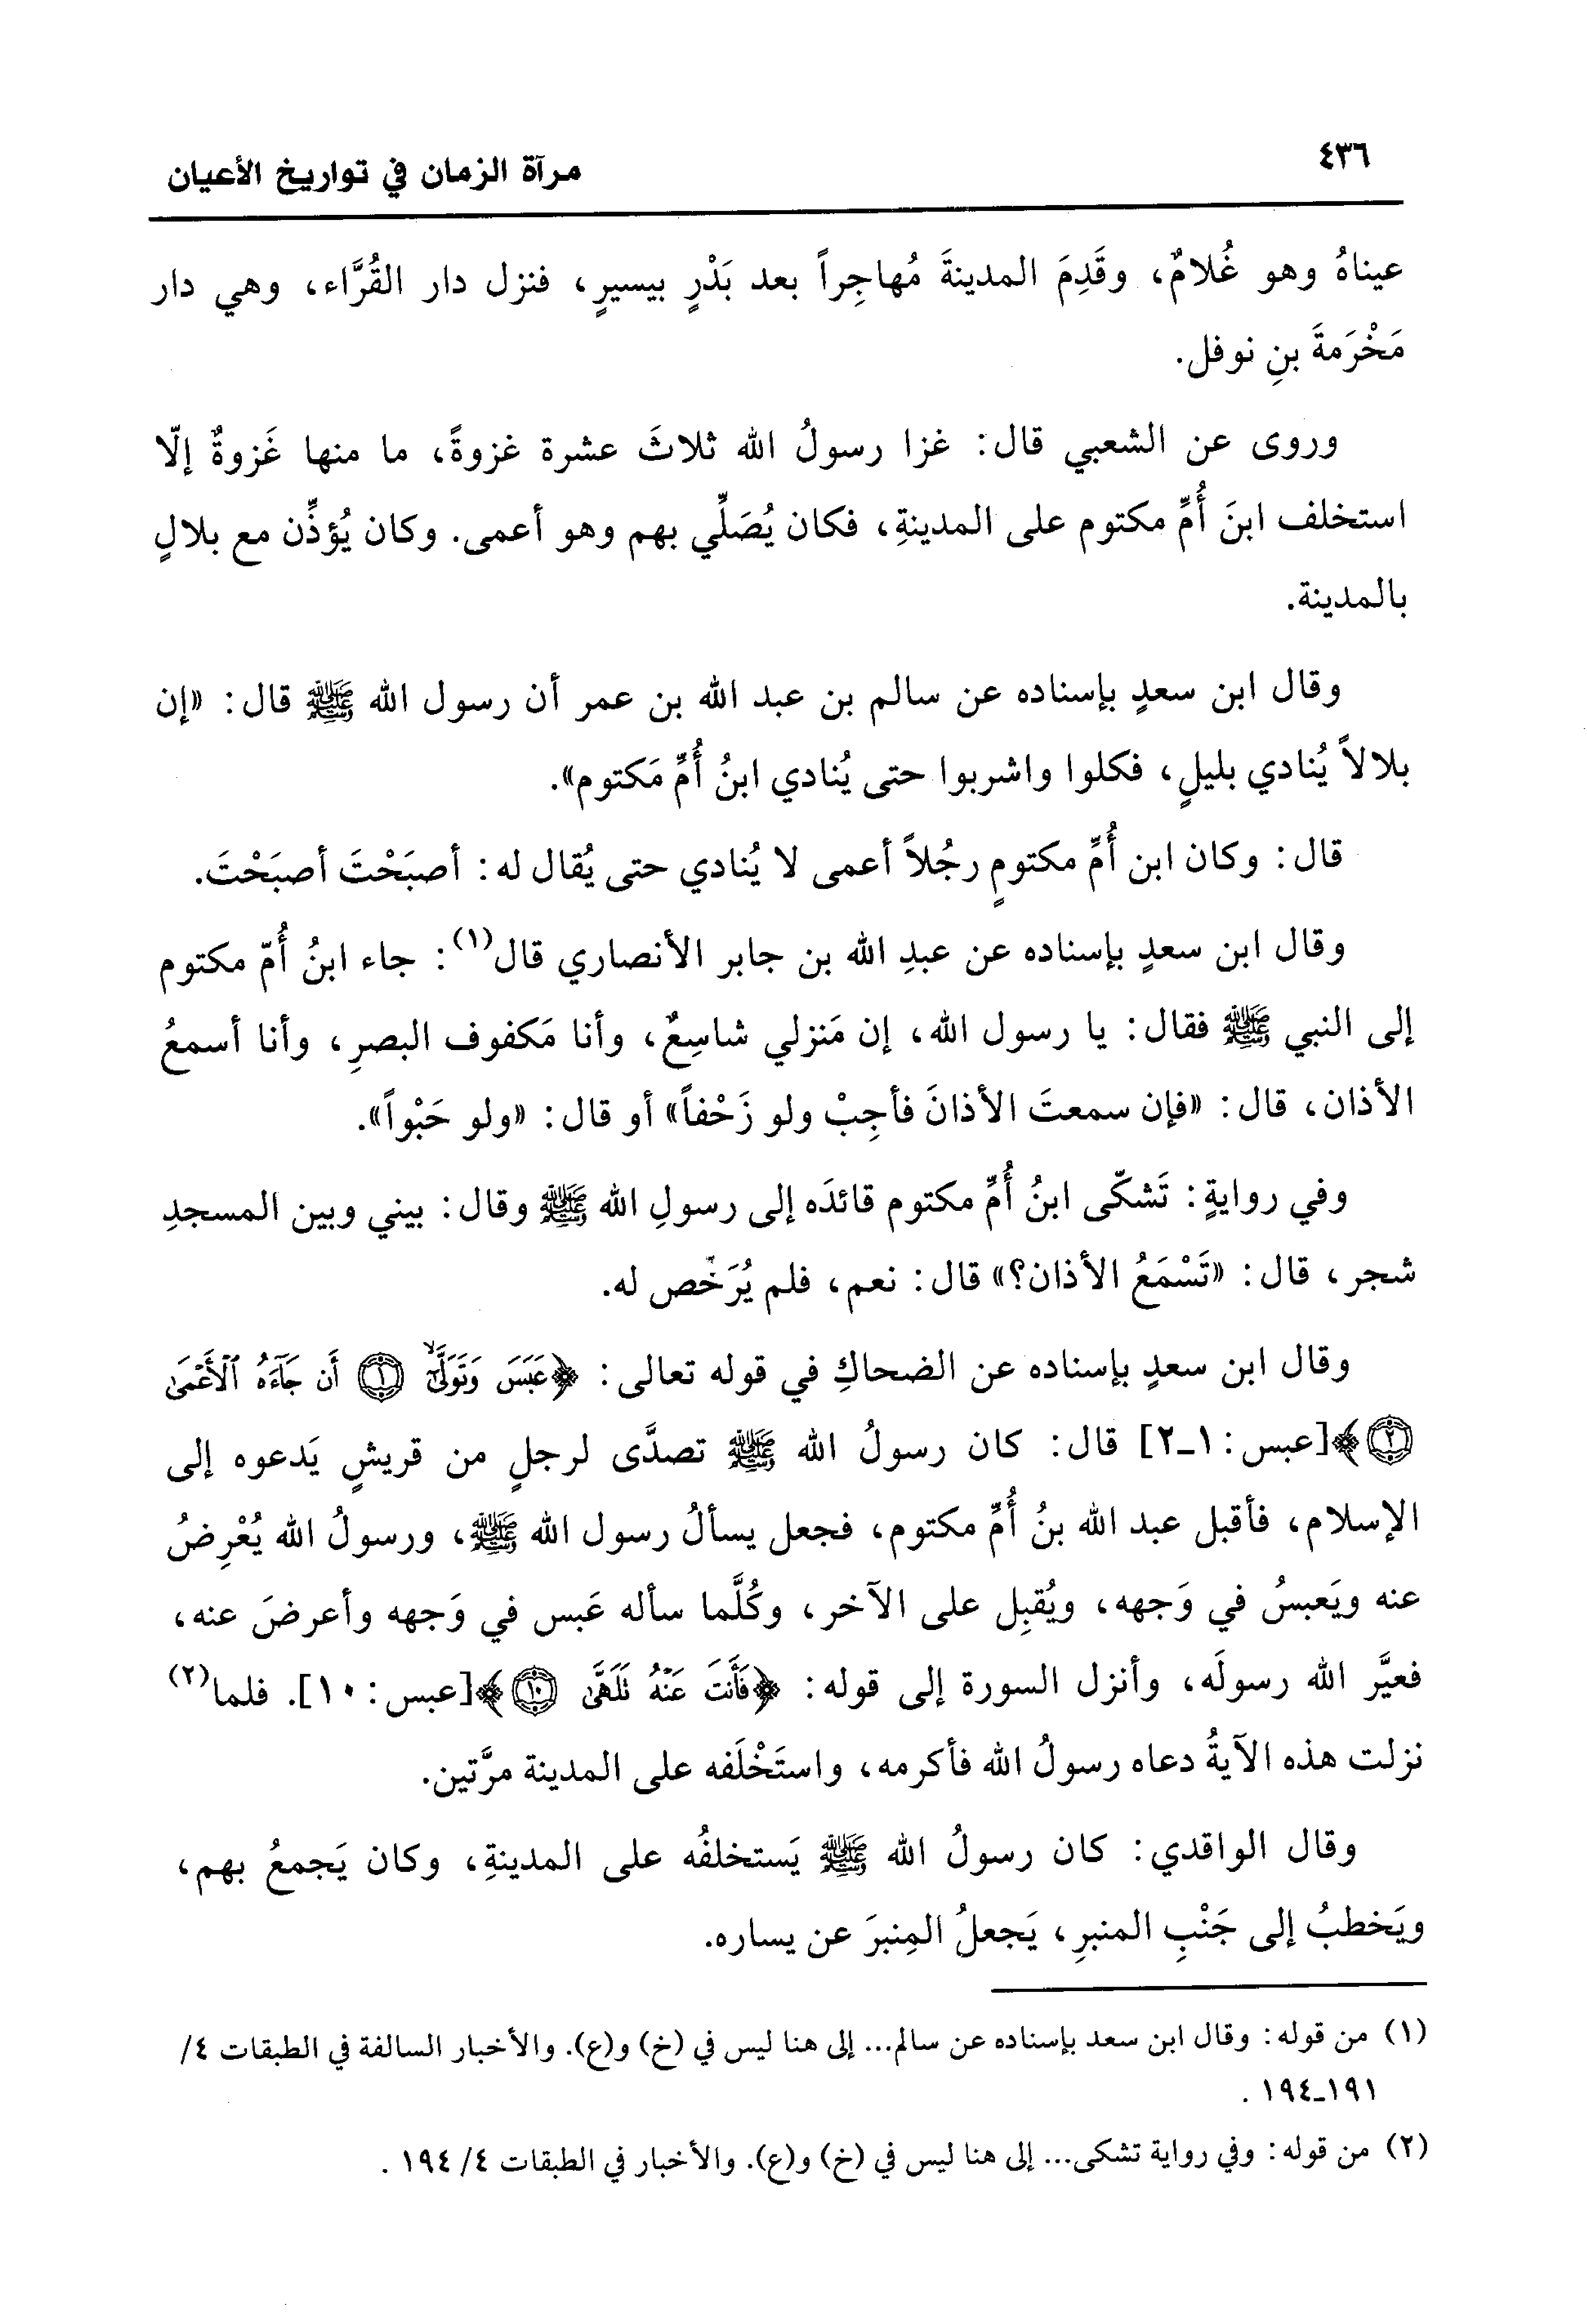 ٤٣٦
مرآة الزمان في تواريخ الأعيان
عيناهُ وهو غُلامٌ، وقَدِمَ المدينةَ مُهاجِراً بعد بَدْرٍ بيسيرٍ، فنزل دار القُرَّاء، وهي دار
مَخْرَمةَ بنِ نوفل.
وروى عن الشعبي قال: غزا رسولُ الله ثلاثَ عشرة غزوةً، ما منها غَزوةٌ إلّا
استخلف ابنَ أُمِّ مكتوم على المدينةِ، فكان يُصَلِّي بهم وهو أعمى. وكان يُؤذِّن مع بلالٍ
بالمدينة.
وقال ابن سعدٍ بإسناده عن سالم بن عبد الله بن عمر أن رسول الله ﷺ قال: «إن
بلالاً يُنادي بليلٍ، فكلوا واشربوا حتى يُنادي ابنُ أُمِّ مَكتوم».
قال: وكان ابن أُمِّ مكتومٍ رجُلاً أعمى لا يُنادي حتى يُقال له: أصبَحْتَ أصبَحْتَ.
وقال ابن سعدٍ بإسناده عن عبدِ الله بن جابر الأنصاري قال(١): جاء ابنُ أُمّ مكتوم
إلى النبي ﷺ فقال: يا رسول الله، إن مَنزلي شاسِعٌ، وأنا مَكفوف البصرِ، وأنا أسمعُ
الأذان، قال: «فإن سمعتَ الأذانَ فأجِبْ ولو زَحْفاً» أو قال: «ولو حَبْواً».
وفي روايةٍ: تَشكّى ابنُ أُمِّ مكتوم قائدَه إلى رسولِ الله ﷺ وقال: بيني وبين المسجدِ
شجر، قال: «تَسْمَعُ الأذان؟» قال: نعم، فلم يُرَخّص له.
وقال ابن سعدٍ بإسناده عن الضحاكِ في قوله تعالى: ﴿عَبَسَ وَتَوَلَّىٰٓ ۙ ١ أَن جَآءَهُ ٱلْأَعْمَىٰ
٢﴾[عبس: ١ـ٢] قال: كان رسولُ الله ﷺ تصدَّى لرجلٍ من قريشٍ يَدعوه إلى
الإسلام، فأقبل عبد الله بنُ أُمِّ مكتوم، فجعل يسألُ رسول الله ﷺ، ورسولُ الله يُعْرِضُ
عنه ويَعبسُ في وَجهه، ويُقبِل على الآخر، وكُلَّما سأله عَبس في وَجهه وأعرضَ عنه،
فعيَّر الله رسولَه، وأنزل السورة إلى قوله: ﴿فَأَنتَ عَنْهُ تَلَهَّىٰ ١٠﴾[عبس: ١٠]. فلما(٢)
نزلت هذه الآيةُ دعاه رسولُ الله فأكرمه، واستَخْلَفه على المدينة مرَّتين.
وقال الواقدي: كان رسولُ الله ﷺ يَستخلفُه على المدينةِ، وكان يَجمعُ بهم،
ويَخطبُ إلى جَنْبِ المنبرِ، يَجعلُ المِنبرَ عن يساره.
(١) من قوله: وقال ابن سعد بإسناده عن سالم... إلى هنا ليس في (خ) و(ع). والأخبار السالفة في الطبقات ٤/
١٩١ـ١٩٤ .
(٢) من قوله: وفي رواية تشكى... إلى هنا ليس في (خ) و(ع). والأخبار في الطبقات ٤/ ١٩٤ .